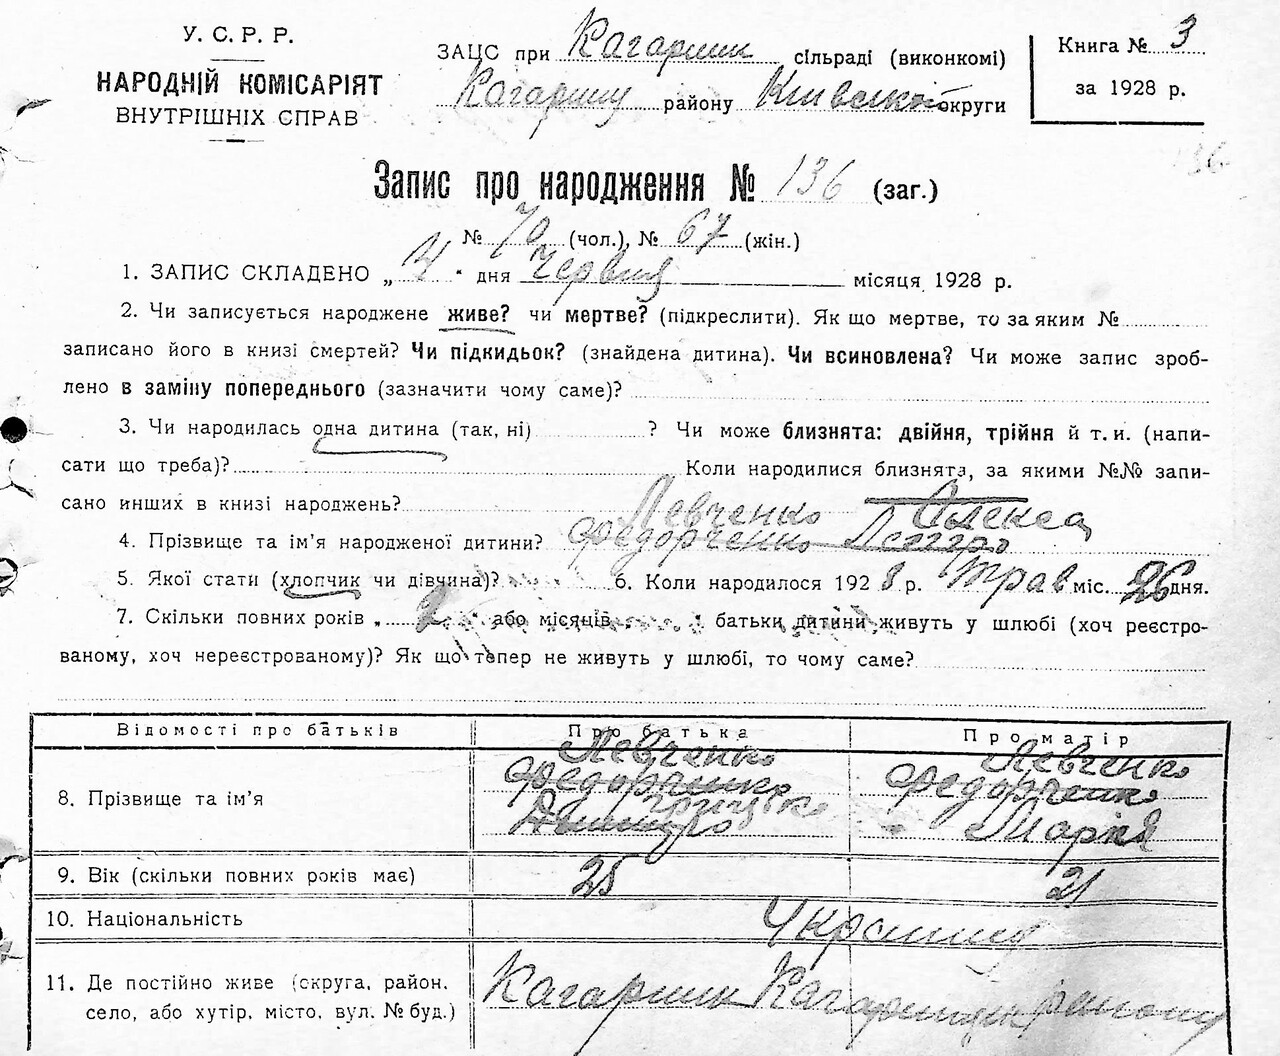 У. С. Р. Р.
НАРОДНІЙ КОМІСАРІЯТ
ВНУТРІШНІХ СПРАВ
ЗАЦС при Кагарлик сільраді (виконкомі)
району Київської округи
Книга № 3
за 1928 р.
136
Запис про народження № 136 (заг.)
№ 70 (чол.), № 67 (жін.)
1. ЗАПИС СКЛАДЕНО „ “ дня Червня місяця 1928 р.
2. Чи записується народжене живе? чи мертве? (підкреслити). Як що мертве, то за яким №
записано його в книзі смертей? Чи підкидьок? (знайдена дитина). Чи всиновлена? Чи може запис зроб-
лено в заміну попереднього (зазначити чому саме)?
3. Чи народилась одна дитина (так, ні) ? Чи може близнята: двійня, трійня й т. и. (напи-
сати що треба)? Коли народилися близнята, за якими №№ запи-
сано инших в книзі народжень?
Левченко Олекса
4. Прізвище та ім’я народженої дитини? Федорченко
5. Якої стати (хлопчик чи дівчина)? 6. Коли народилося 1928 р. Трав міс. 26 дня.
7. Скільки повних років „ 2 “ або місяців „ “ батьки дитини живуть у шлюбі (хоч реєстро-
ваному, хоч нереєстрованому)? Як що тепер не живуть у шлюбі, то чому саме?
Відомості про батьків Про батька Про матір
Левченко Левченко
Федорченко Федорченко
8. Прізвище та ім’я Грицько Марія
9. Вік (скільки повних років має) 25 21
10. Національність
11. Де постійно живе (округа, район,
село, або хутір, місто, вул. № буд.) Кагарлик району